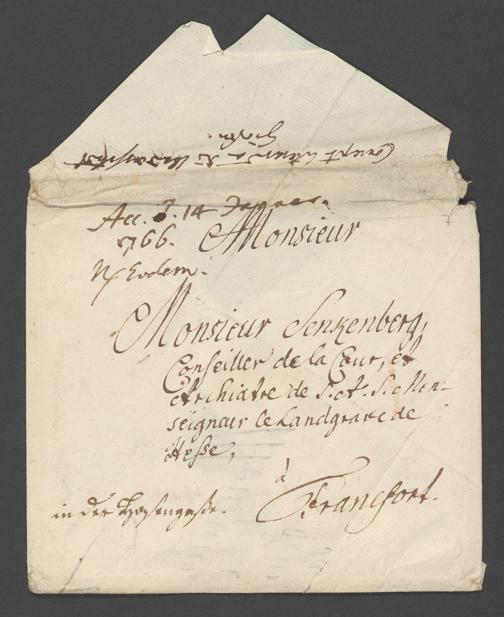 Acc. d. 14 Januar.
1766.
Monsieur
Monsieur Senkenberg,
Conseiller de la Cour, et
Archiatre de S. A. S. Mon-
seigneur le Landgrave de
Hesse,
à
Francfort.
in der Hasengaße.